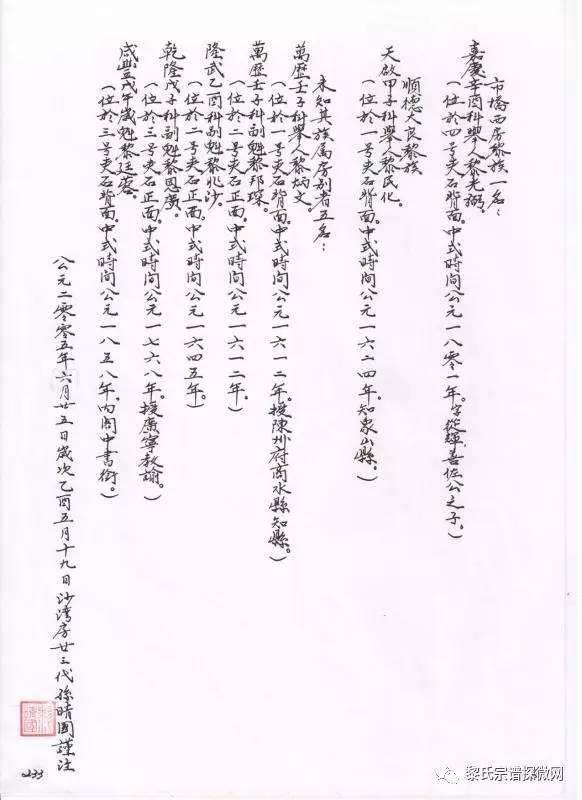 市橋西房黎族一名：
嘉慶辛酉科舉人黎光弼。
（位於四号夹石背面。中式時间公元一八零一年。字從輝，善佐公之子。）
順德大良黎族
天啟甲子科舉人黎民化。
（位於一号夹石背面。中式時间公元一六二四年。知象山縣。）
未知其族属房别者五名：
萬歷壬子科舉人黎炳文。
（位於一号夹石背面。中式時间公元一六一二年。授陳州府商水縣知縣。）
萬歷壬子科副魁黎邦琛。
（位於二号夹石正面。中式時间公元一六一二年。）
隆武乙酉科副魁黎兆沙。
（位於二号夹石正面。中式時间公元一六四五年。）
乾隆戊子科副魁黎恩廣。
（位於三号夹石正面。中式時间公元一七六八年。授廣寧教諭。）
咸豐戊午年歲魁黎廷
（位於三号夹石背面。中式時间公元一八五八年。内阁中書銜。）
公元二零零五年六月廿五日歲次乙酉五月十九日沙湾房廿三代孫晴國謹注
233
黎氏宗谱探微网